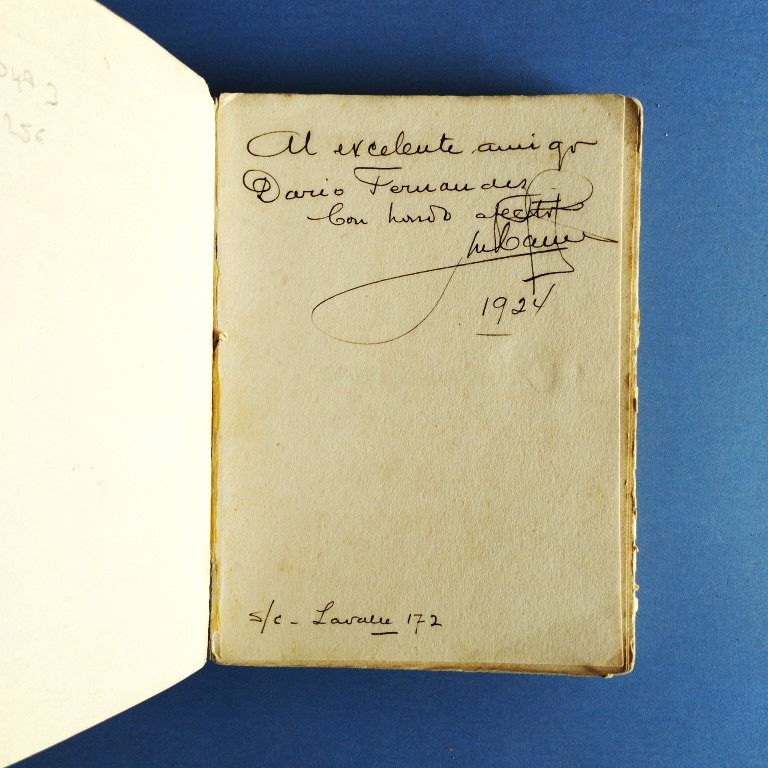 Al excelente amigo
Dario Fernandez
Con hondo afecto
1924
S/c - Lavalle 172